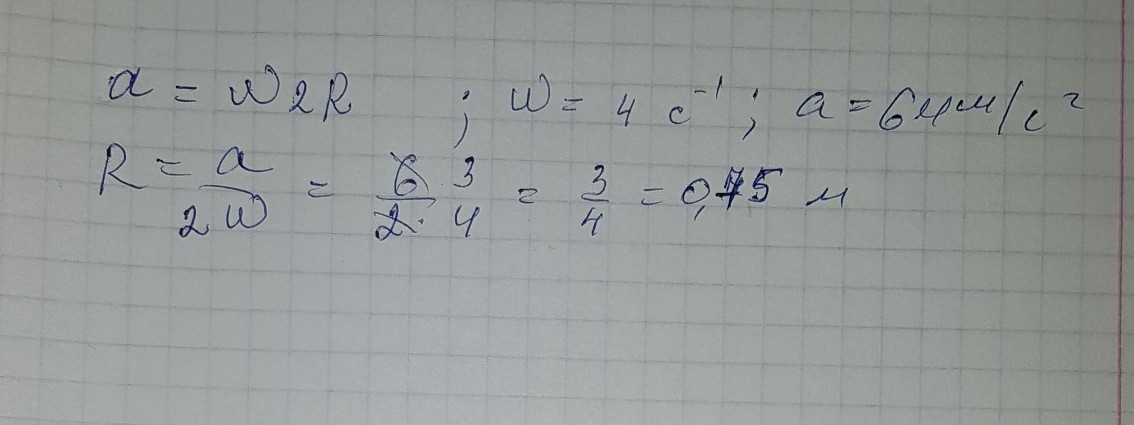 a = ω2R ; ω = 4 с⁻¹ ; a = 64м/с²
R = a/2ω = 6/2· 3/4 = 3/4 = 0,75 м